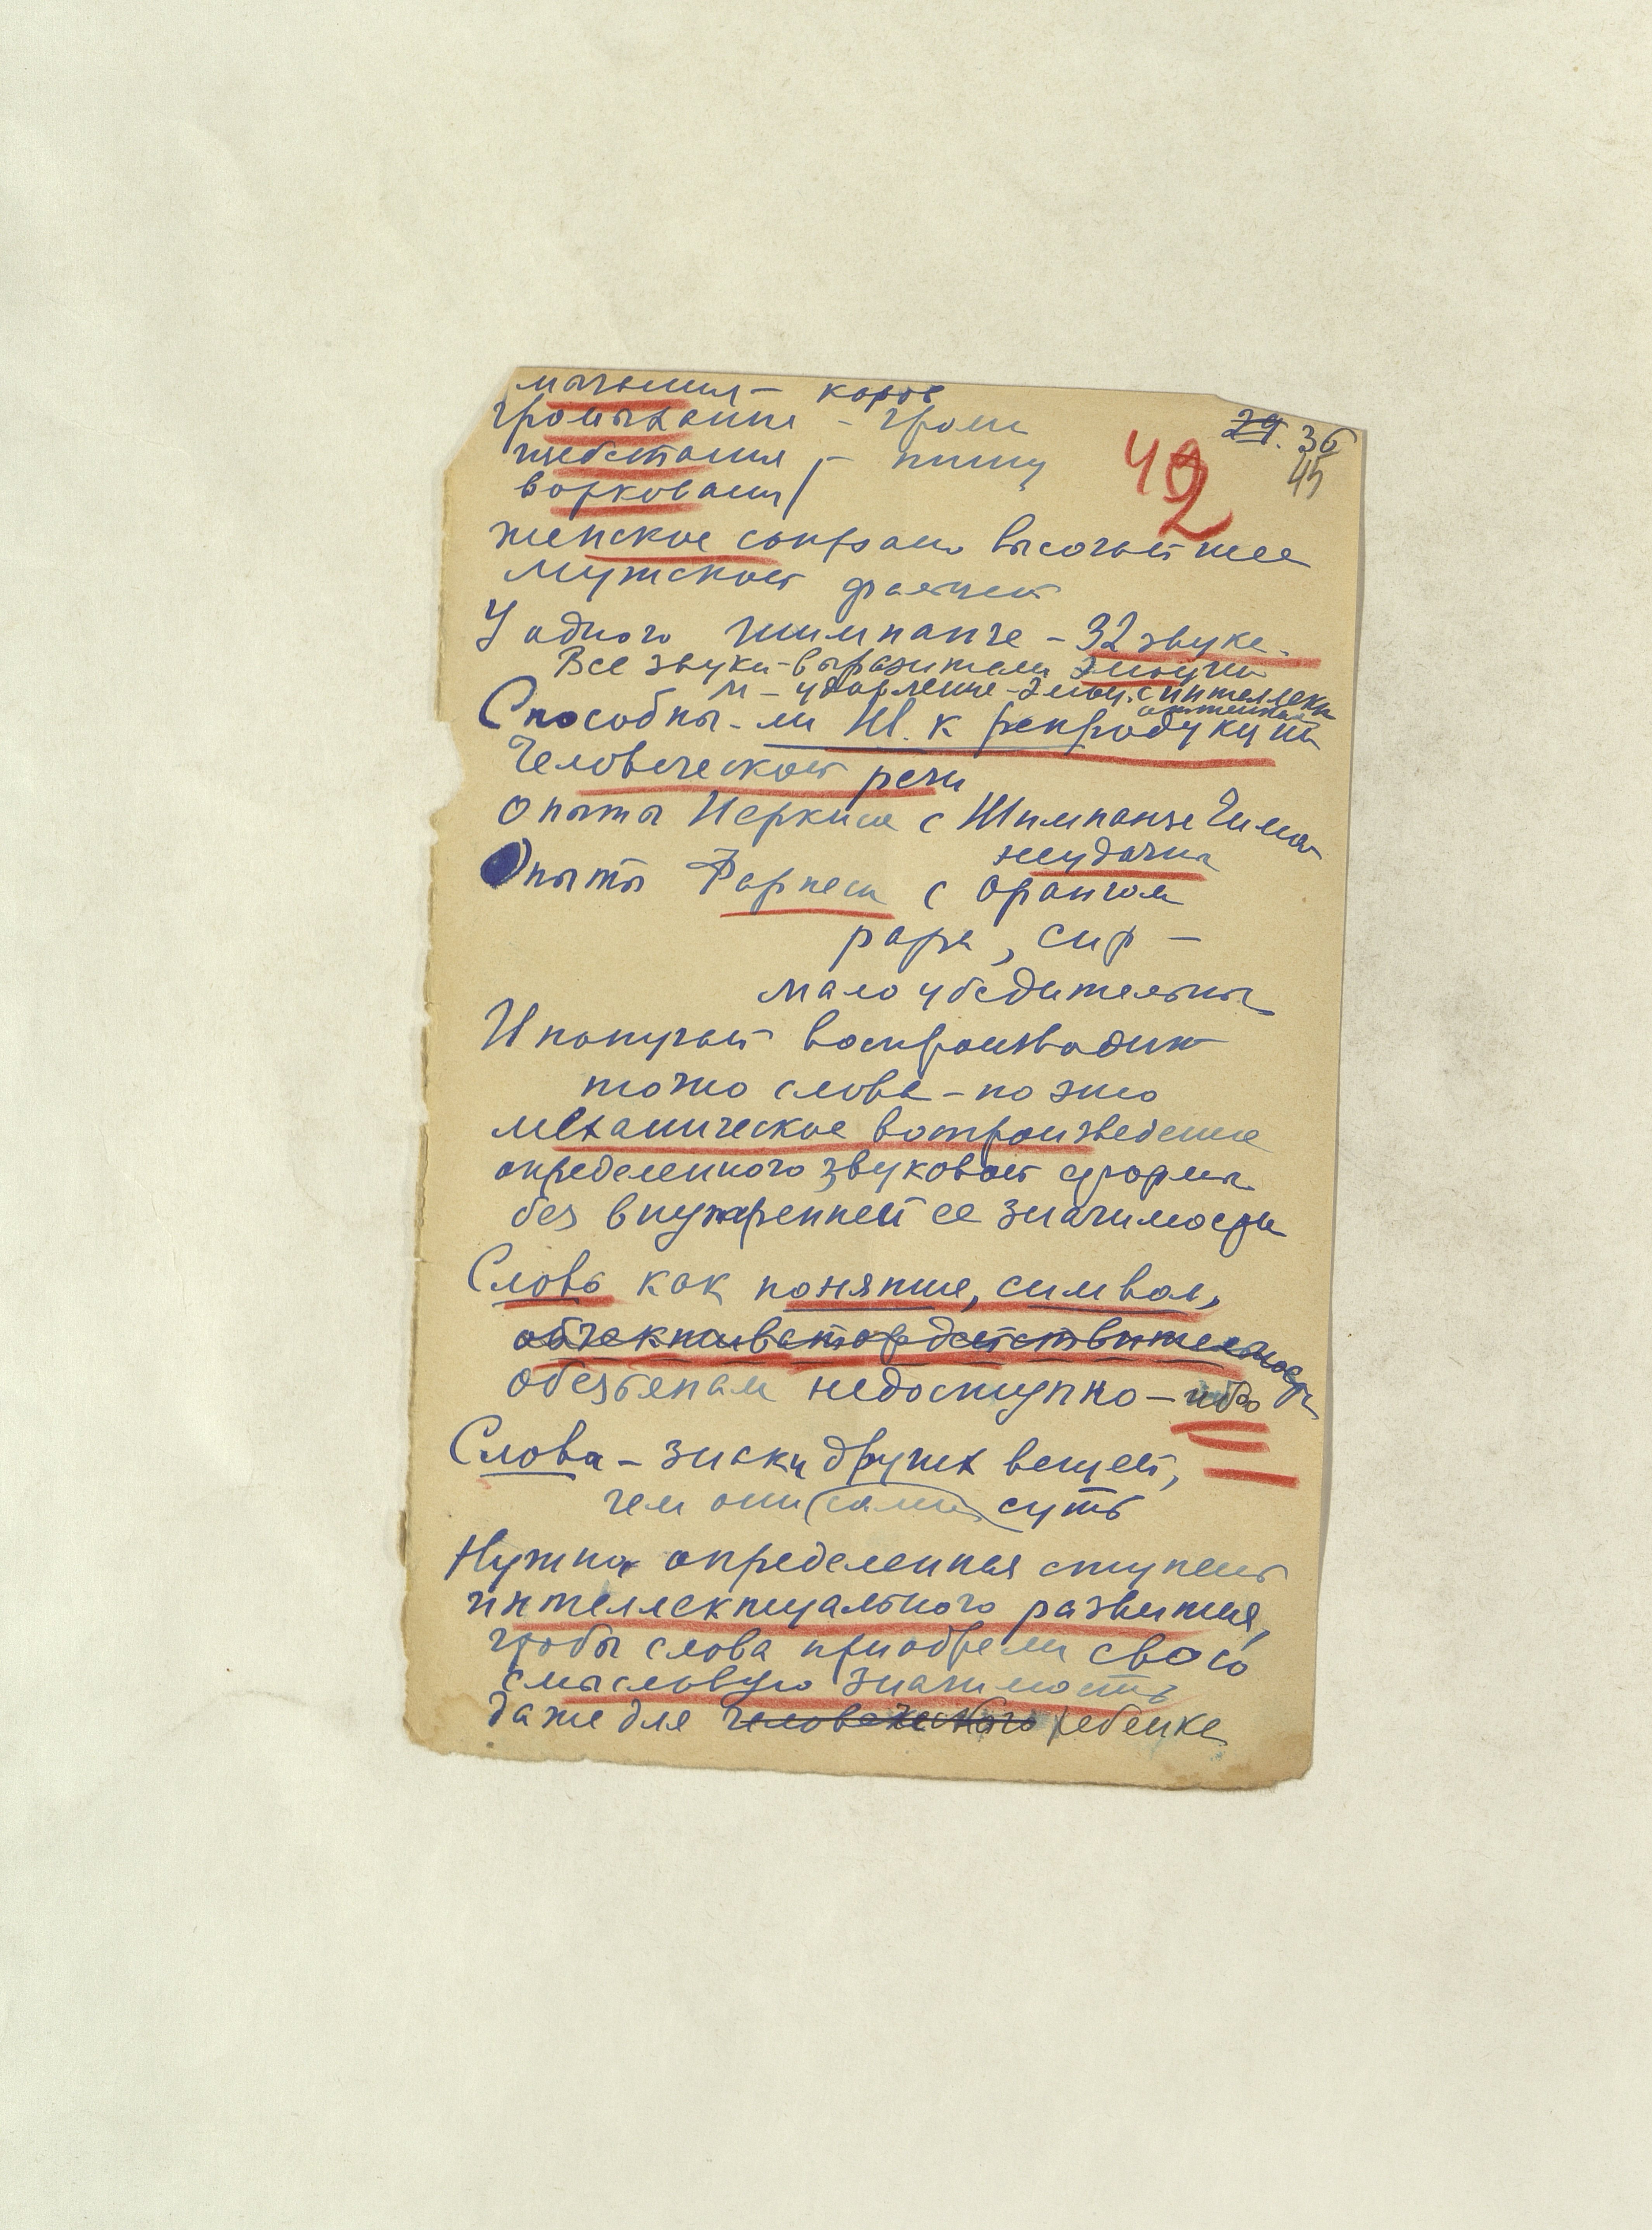 мычания – коров
громыхания – гром
щебетания, – птиц
воркования
29. 36
45
42
женское сопрано высочайшее
мужской фальцет
У одного шимпанзе – 32 звука.
Все звуки – выразители эмоции
М – удавление – эмоц. с интеллекту
оттенком
Способны-ли Ш. к репродукции
Человеческой речи
Опыты Иеркиса с Шимпанзе Чима
неудачны
Опыты Фарнеса с орангом
papa, cup –
мало убедительны
И попугай воспроизводит
тоже слова – но это
механическое воспроизведение
определенного звуковой формы
без внутренней ее значимости
Слово как понятие, символ,
объективатор действительности
обезьянам недоступно – ибо
Слова – знаки других вещей,
чем они сами суть
Нужна определенная ступень
интеллектуального развития,
чтобы слова приобрели свою
смысловую значимость
даже для человеческого ребенка